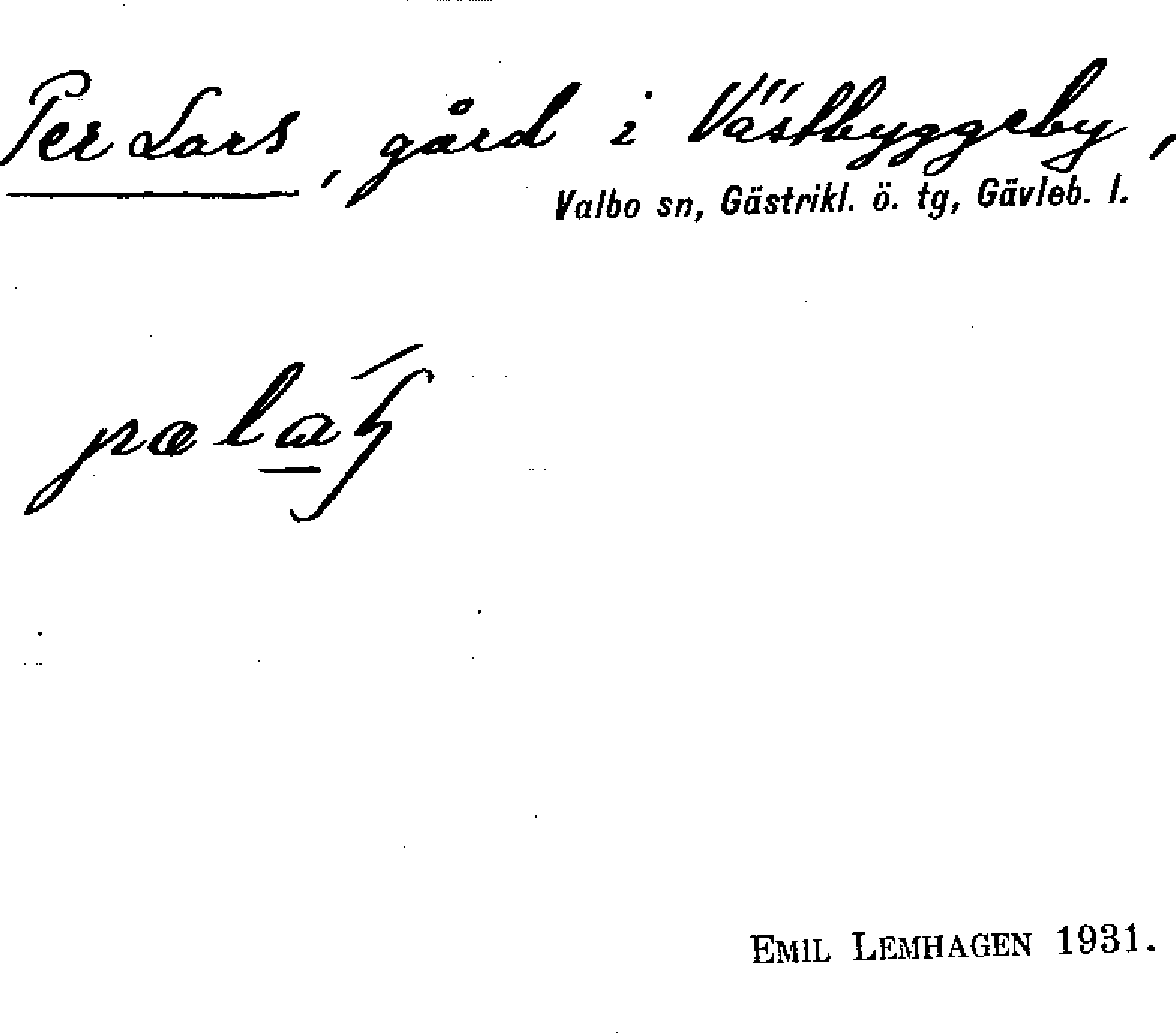 Per Lars, gård i Västbyggeby,
Valbo sn, Gästrikl. ö. tg, Gävleb. l.
EMIL LEMHAGEN 1931.